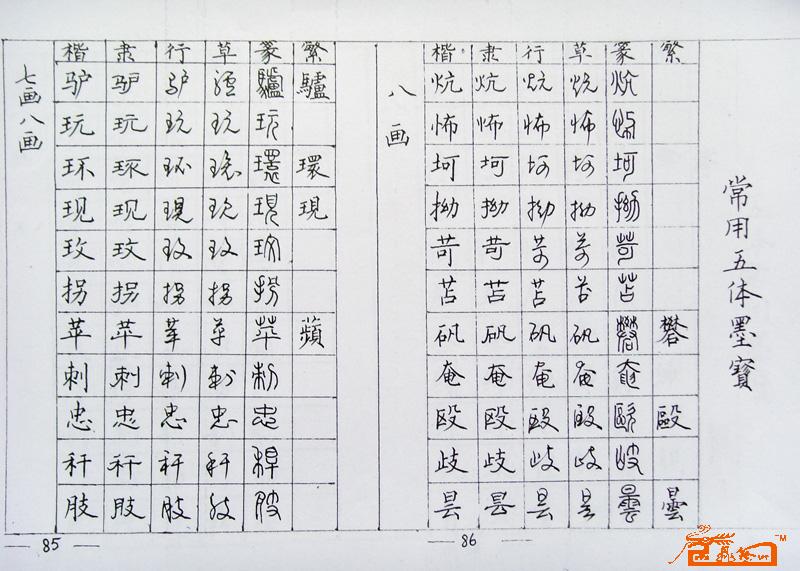 七画八画
楷 隶 行 草 篆 繁
驴 驴 驴 驴 驢 驢
玩 玩 玩 玩 玩
环 环 环 环 環 環
现 现 现 现 現 現
玫 玫 玫 玫 玫
拐 拐 拐 拐 拐
苹 苹 苹 苹 苹 蘋
刺 刺 刺 刺 刺
忠 忠 忠 忠 忠
秆 秆 秆 秆 稈
肢 肢 肢 肢 肢
85
八画
楷 隶 行 草 篆 繁
炕 炕 炕 炕 炕
怖 怖 怖 怖 怖
坷 坷 坷 坷 坷
拗 拗 拗 拗 拗
苛 苛 苛 苛 苛
苫 苫 苫 苫 苫
矾 矾 矾 矾 礬 礬
奄 奄 奄 奄 奄
殴 殴 殴 殴 毆 毆
歧 歧 歧 歧 歧
昙 昙 昙 昙 曇 曇
86
常用五体墨寳